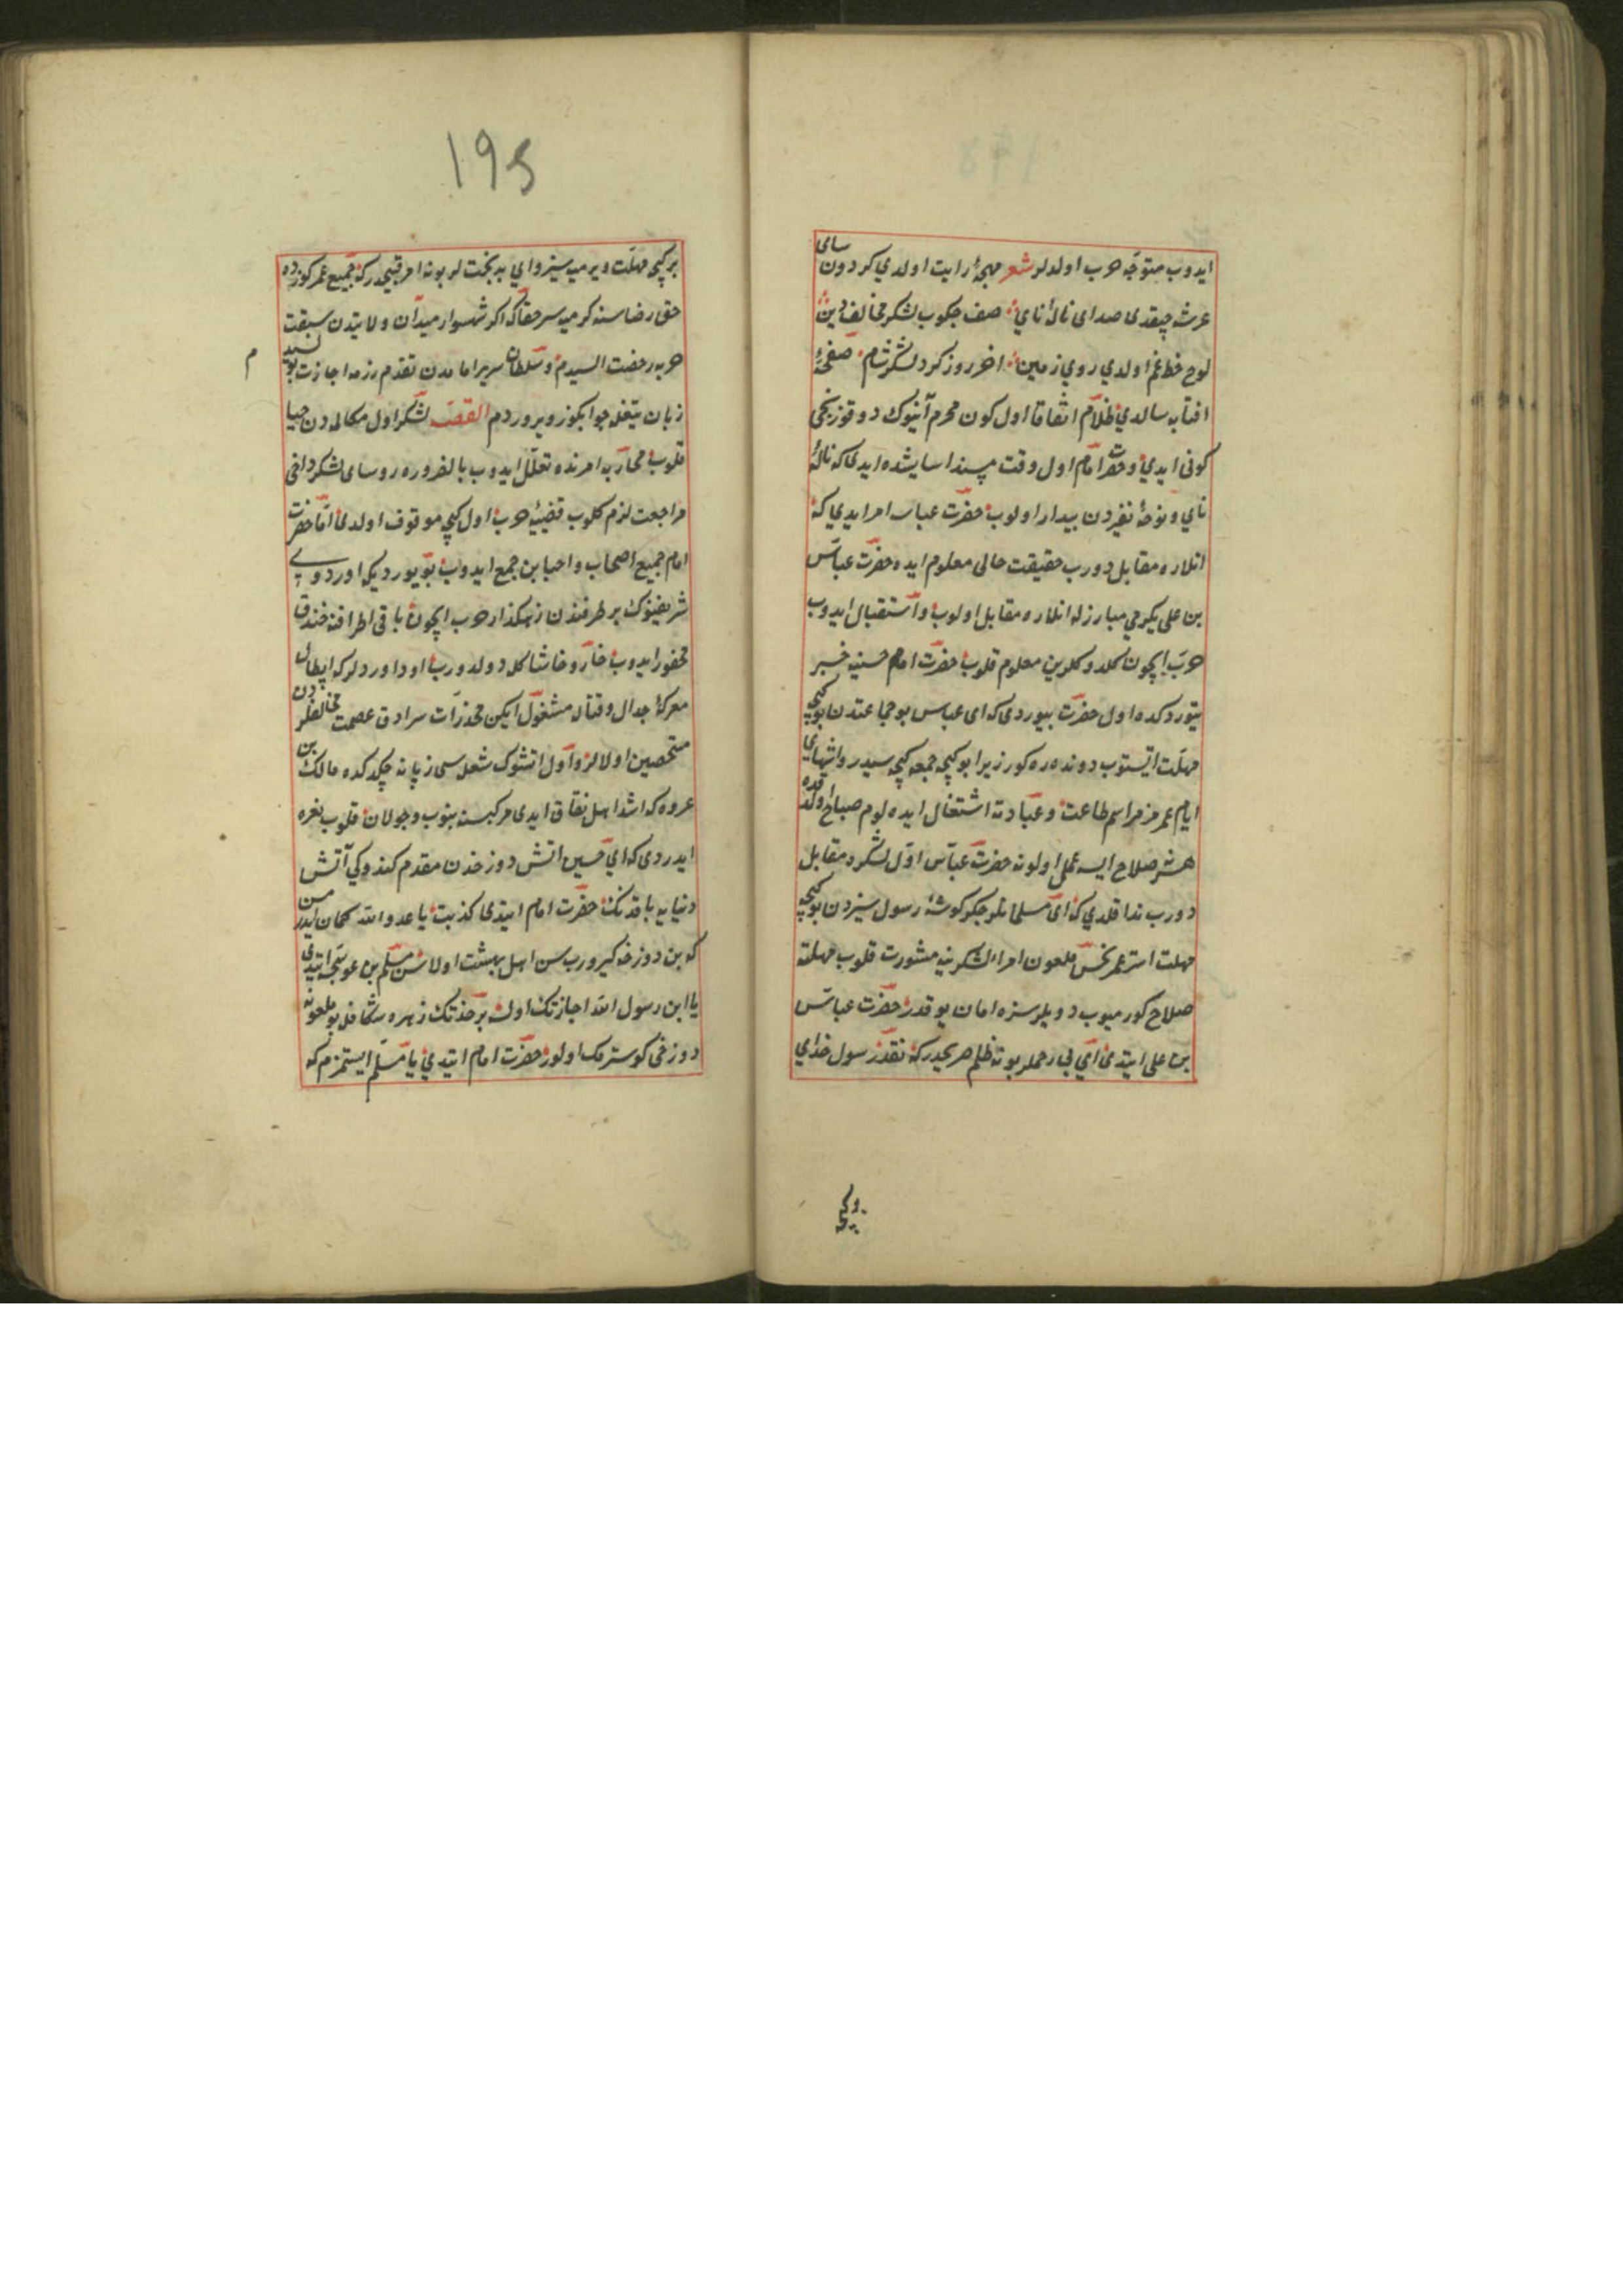 ایدوب متوجّه حرب اولدلر شعر مهجۀ رایت اولدي کردون سای
عرشه چیقدی صدای نالۀ نای صف چکوب لشکر مخالف دین
لوح خط غم اولدي روي زمین اخر روز کرد لشکر شام صفحۀ
افتابه سالدي ظلام اتفاقا اول کون محرم آینوک دوقوزنجی
کونی ایدي و حضرت امام اول وقت مسند اسایشده ایدی که نالۀ
نای و نوحۀ نفیردن بیدار اولوب حضرت عباسه امر ایدي که
انلاره مقابل دوروب حقیقت حالی معلوم ایده حضرت عباس
بن علی یکرمي مبارزله انلاره مقابل اولوب و استقبال ایدوب
حرب ایچون کلدوکلرین معلوم قلوب حضرت امام حسینه خبر
یتوردکده اول حضرت بیوردی که ای عباس بو جماعتدن بو کیجه
مهلت ایستوب دونده ره کور زیرا بو کیجه جمعه کیجه سیدر و انتهای
ایام عمرمز مراسم طاعت و عبادته اشتغال ایده لوم صباح اولدقده
هر نه صلاح ایسه عمل اولونه حضرت عباس اول لشکره مقابل
دوروب ندا قلدي که ای مسلمانلر جکر کوشۀ رسول سیزدن بو کیجه
مهلت استر عمر نحس ملعون امراء لشکرینه مشورت قلوب مهلته
صلاح کورمیوب دویلر سزه امان یوقدر حضرت عباس
بن علی ایتدی ای بی رحملر بو نه ظلم صریحدر که نقد رسول خدای
بر کیجه
بر کیجه مهلت ویرمیسیز وای بدبختلر بو نه امر قبیحدر که جمیع عمر کوزده
حق رضاسنه کرمیسر حقا که اکر شهسوار میدان ولایتدن سبقت
حربه رخصت السیدم و سلطان سریر امامدن تقدم رزمه اجازت بولسیدم
زبان تیغله جوابکوز ویروردم القصه لشکر اول مکالمه دن حیا
قلوب محاربه امرنده تعلل ایدوب بالضروره روسای لشکر داخی
مراجعت لازم کلوب قضیۀ حرب اول کیجه موقوف اولدی اما حضرت
امام جمیع اصحاب و احبابن جمع ایدوب بویوردیکه اوردوی
شریفینوک بر طرفندن رهکذار حرب ایچون باقی اطرافنه خندق
محفور ایدوب خار و خاشاکله دولدوروب اودا اوردلر که ابطال
معرکۀ جدال و قتاله مشغول ایکن مخدرات سرادق عصمت مخالفلردن
متحصین اولالر و اول اتشوک شعله سی زبانه چکدکده مالک بن
عروه که اشد اهل نفاق ایدی مرکبنه بینوب و جولان قلوب نعره
ایدردی که ای حسین اتش دوزخدن مقدم کندوکي آتش
دنیایه یاقدنک حضرت امام ایتدی کذبت یا عدو الله کمان ایدرمیسن
که بن دوزخه کیرورم سن اهل بهشت اولاسن مسلم بن عوسجه ایتدی
یا ابن رسول الله اجازتک اولسه بر خدنک زهره شکافله بو ملعونه
دوزخی کوسترمک اولور حضرت امام ایتدي یا مسلم ایستمزم که
م
195